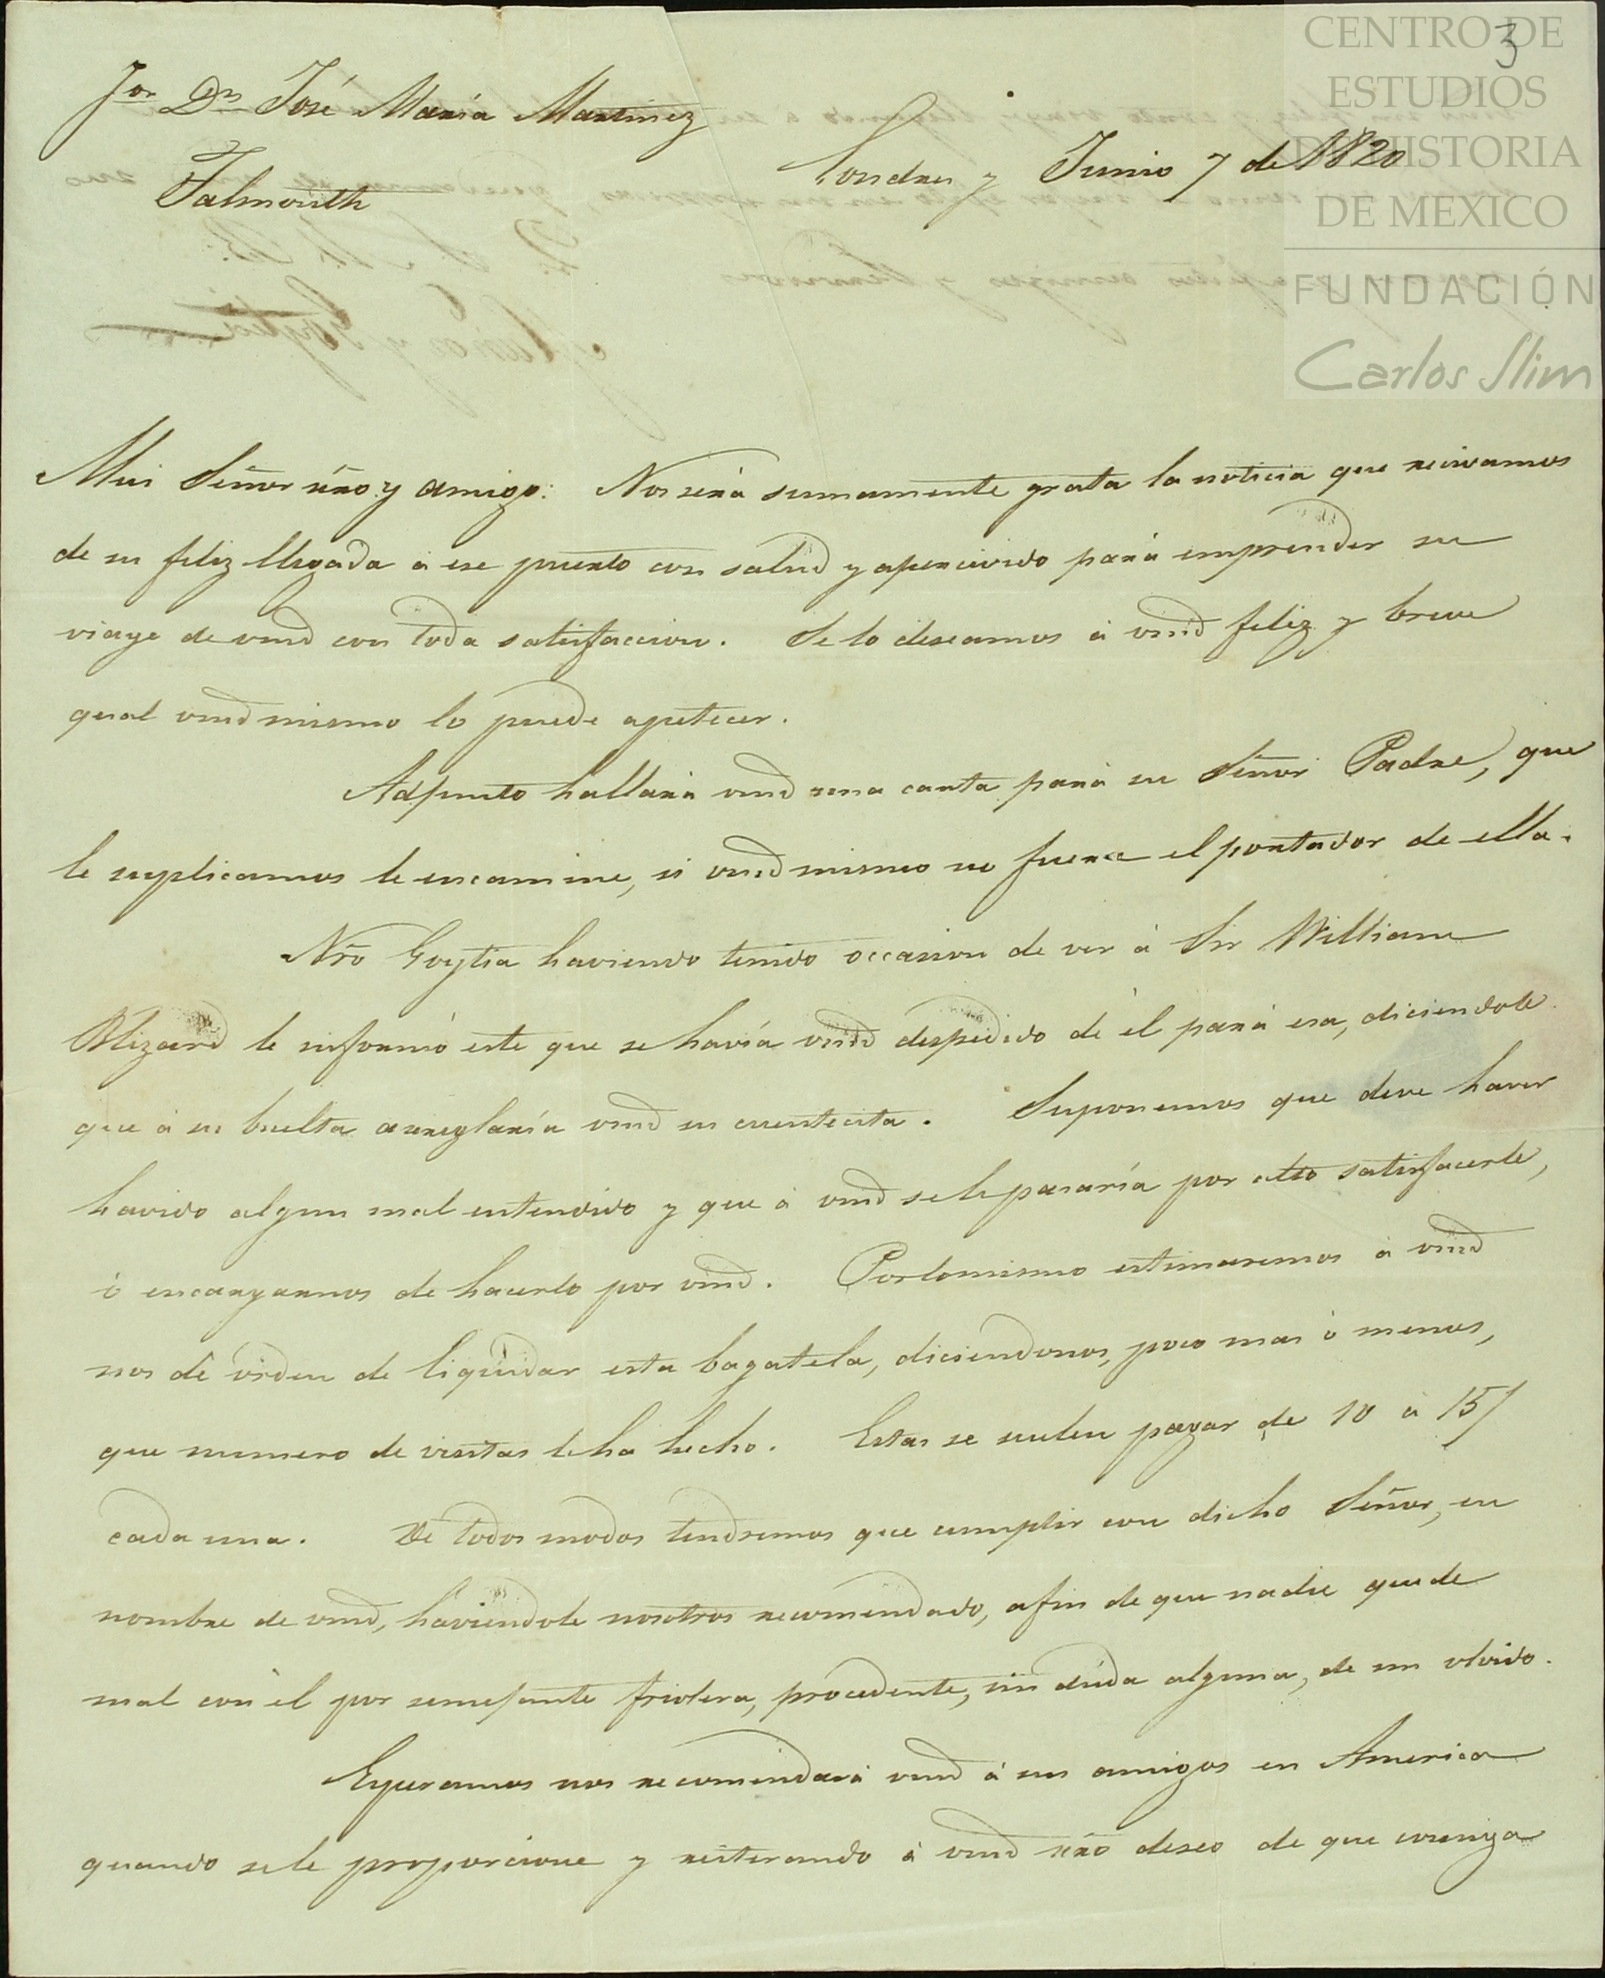 3
CENTRO DE
ESTUDIOS
DE HISTORIA
DE MEXICO
FUNDACIÓN
Carlos Slim
Sor Dn José María Martinez
Falmouth
Londres y Junio 7 de 1820
Mui Señor nro y amigo: Nos será sumamente grata la noticia que recivamos
de su feliz llegada á ese puerto con salud y apercivido pará emprender su
viage de vmd con toda satisfaccion. Se lo deseamos á vmd feliz y breve
qual vmd mismo lo puede apetecer.
Adjunto hallará vmd una carta pará su Señor Padre, que
le suplicamos le encamine, si vmd mismo no fuere el portador de ella.
Nro Goytia haviendo tenido occasion de ver á Sir William
Blizard le informó este que se havía vmd despedido de él pará esa, diciendole
que á su buelta arreglaría vmd su cuentecita. Suponemos que deve haver
havido algun mal entendido y que á vmd sele pasaría por alto satisfacerle,
ó encargarnos de hacerlo por vmd. Porlomismo estimaremos á vmd
nos dé órden de liquidar esta bagatela, diciendonos, poco mas ó menos,
que numero de visitas le ha hecho. Estas se suelen pagar de 10 á 15/
cada una. De todos modos tendremos que cumplir con dicho Señor, en
nombre de vmd, haviendole nosotros recomendado, afin de que nadie quede
mal con él por semejante friolera, procedente, sin duda alguna, de un olvido.
Esperamos nos recomendará vmd á sus amigos en America
quando sele proporcione y reiterando á vmd nro deseo de que consiga